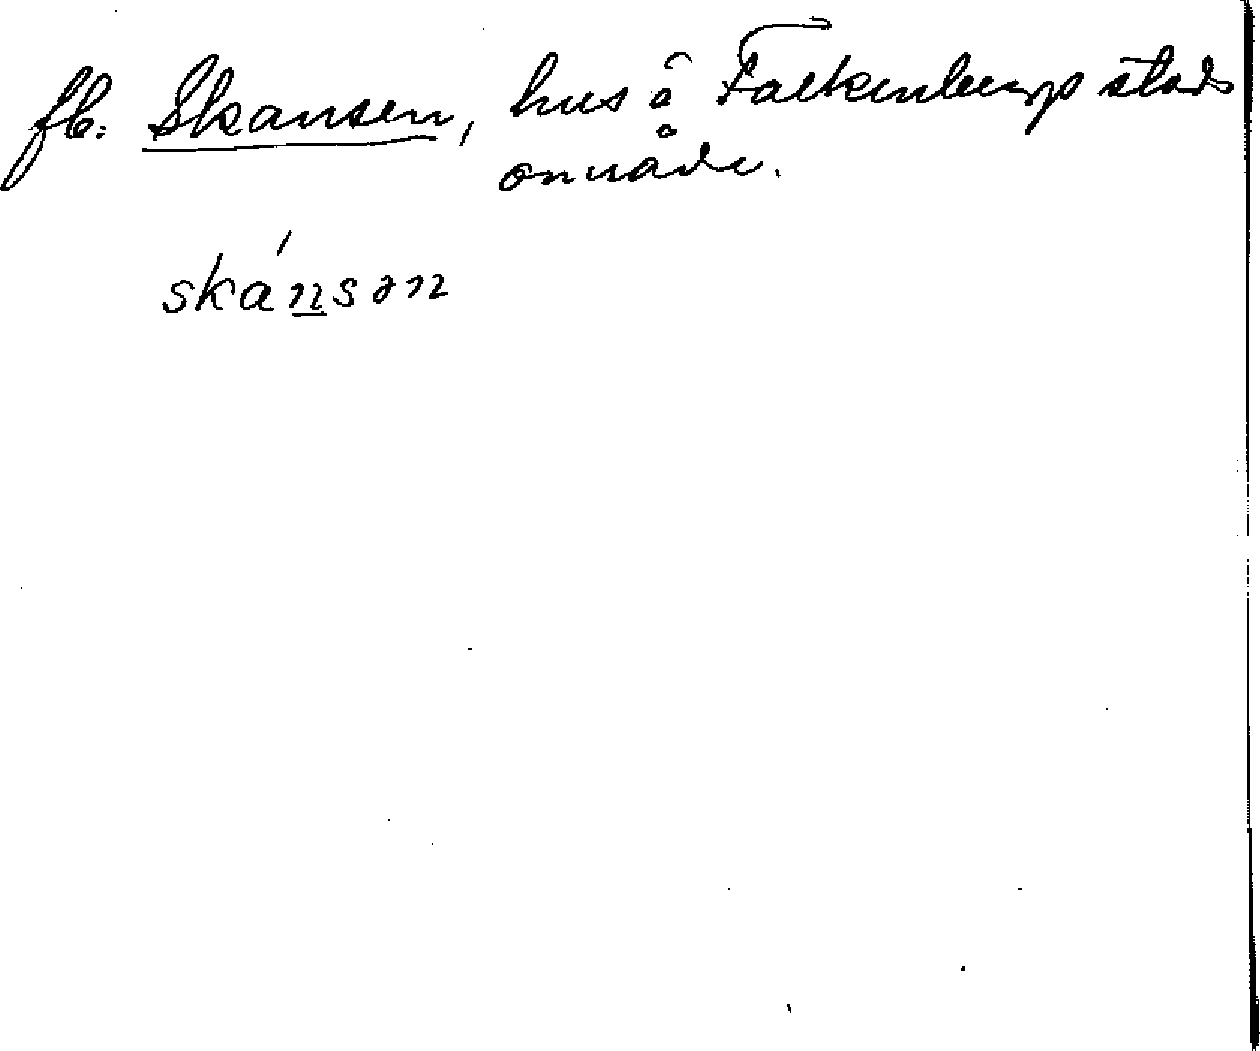 fb. Skansen, hus å Falkenbergs stads
område.
skánsən